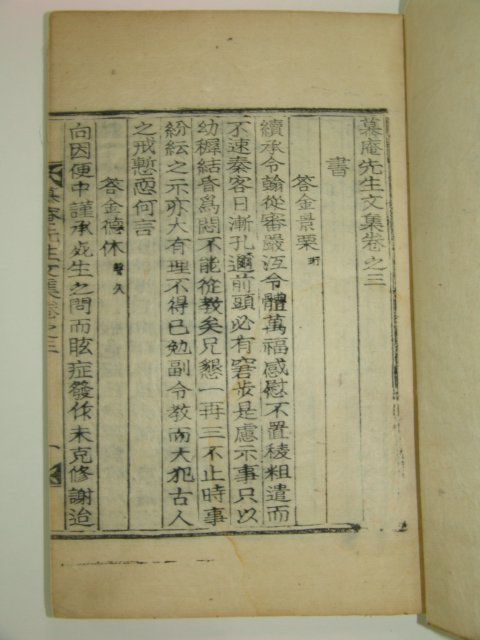 慕庵先生文集卷之三
書
答金景栗
續承令翰從審嚴沍令體萬福感慰不置稜粗遣而
不速秦客日漸孔邇前頭必有窘步是慮示事只以
幼穉結昏爲悶不能從敎矣兄懇一再三不止時事
紛紜之示亦大有理不得已勉副令敎而大犯古人
之戒慙恧何言
答金德休 聲久
向因便中謹承兟生之問而眩症發作未克修謝治